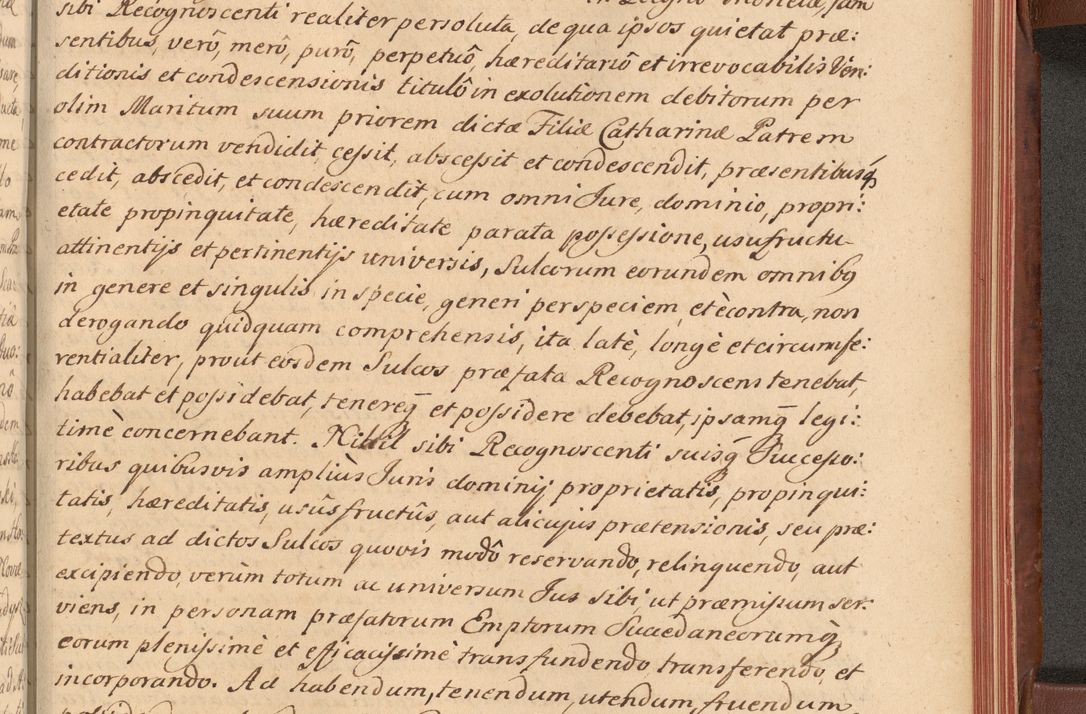 in Regno moneta, jam
sibi Recognoscenti realiter persoluta, de qua ipsos quietat præ:
sentibus, verô, merô, purô, perpetuô, hæreditariô et irrevocabilis Ven:
ditionis et condescensionis titulô in exolutionem debitorum per
olim Maritum suum priorem dictæ Filiæ Catharinæ Patrem
contractorum vendidit, cessit, abscessit et condescendit, præsentibusq́
cedit, abscedit, et condescendit, cum omni Jure, dominio, propri:
etate propinquitate, hæreditate parata possessione, usufructu
attinentijs et pertinentijs universis, Sulcorum eorundem omnibꝰ
in genere et singulis in specie, generi per speciem, et è contra, non
derogando quidquam comprehensis, ita latè, longè et circumfe:
rentialiter, prout eosdem Sulcos præfata Recognoscens tenebat,
habebat et possidebat, tenereq̃ et possidere debebat, ipsamq̃ legi:
timè concernebant. Nihil sibi Recognoscenti suisq̃ Successo:
ribus quibusvis ampliùs Juris dominij proprietatis, propinqui:
tatis, hæreditatis, usûsfructûs, aut alicujus prætensionis, seu præ:
textus ad dictos Sulcos quovis modô reservando, relinquendo, aut
excipiendo, verùm totum ac universum Jus sibi, ut præmissum ser:
viens, in personam præfatorum Emptorum Succedaneorumq̃
eorum plenissimè et efficacissimè transfundendo, transferendo, et
incorporando. Ad habendum, tenendum, utendum, fruendum